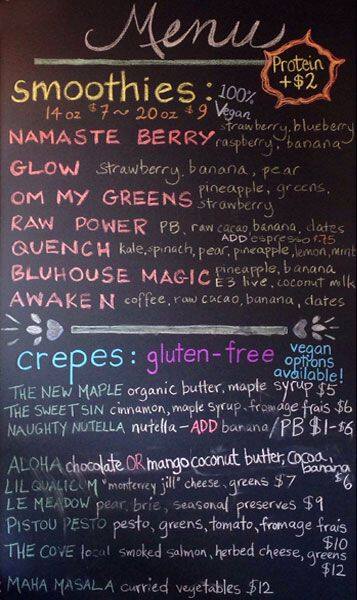 Menu
Protein
+$2
smoothies: 100%
Vegan
14 oz $7 ~ 20 oz $9
NAMASTE BERRY strawberry, blueberry
raspberry, banana
GLOW strawberry, banana, pear
OM MY GREENS pineapple, greens,
strawberry
RAW POWER PB, raw cacao, banana, dates
ADD espresso 1.75
QUENCH kale, spinach, pear, pineapple, lemon, mint
BLUHOUSE MAGIC pineapple, banana
E3 live, coconut milk
AWAKEN coffee, raw cacao, banana, dates
crepes: gluten-free vegan
options
available!
THE NEW MAPLE organic butter, maple syrup $5
THE SWEET SIN cinnamon, maple syrup, fromage frais $6
NAUGHTY NUTELLA nutella-ADD banana/PB $1-$6
ALOHA chocolate OR mango coconut butter, cocoa,
banana
$6
LIL QUALICUM "monterey jill" cheese, greens $7
LE MEADOW pear, brie, seasonal preserves $9
PISTOU PESTO pesto, greens, tomato, fromage frais
$10
THE COVE local smoked salmon, herbed cheese, greens
$12
MAHA MASALA curried vegetables $12